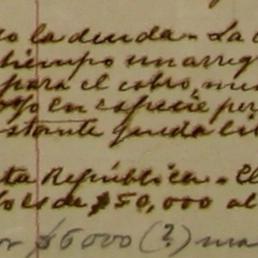 o la deuda. La
tiempo un arreg
para el cobro, me
en especie per
stante queda li
ta República. El
de $50,000 al
$6000 (?) ma